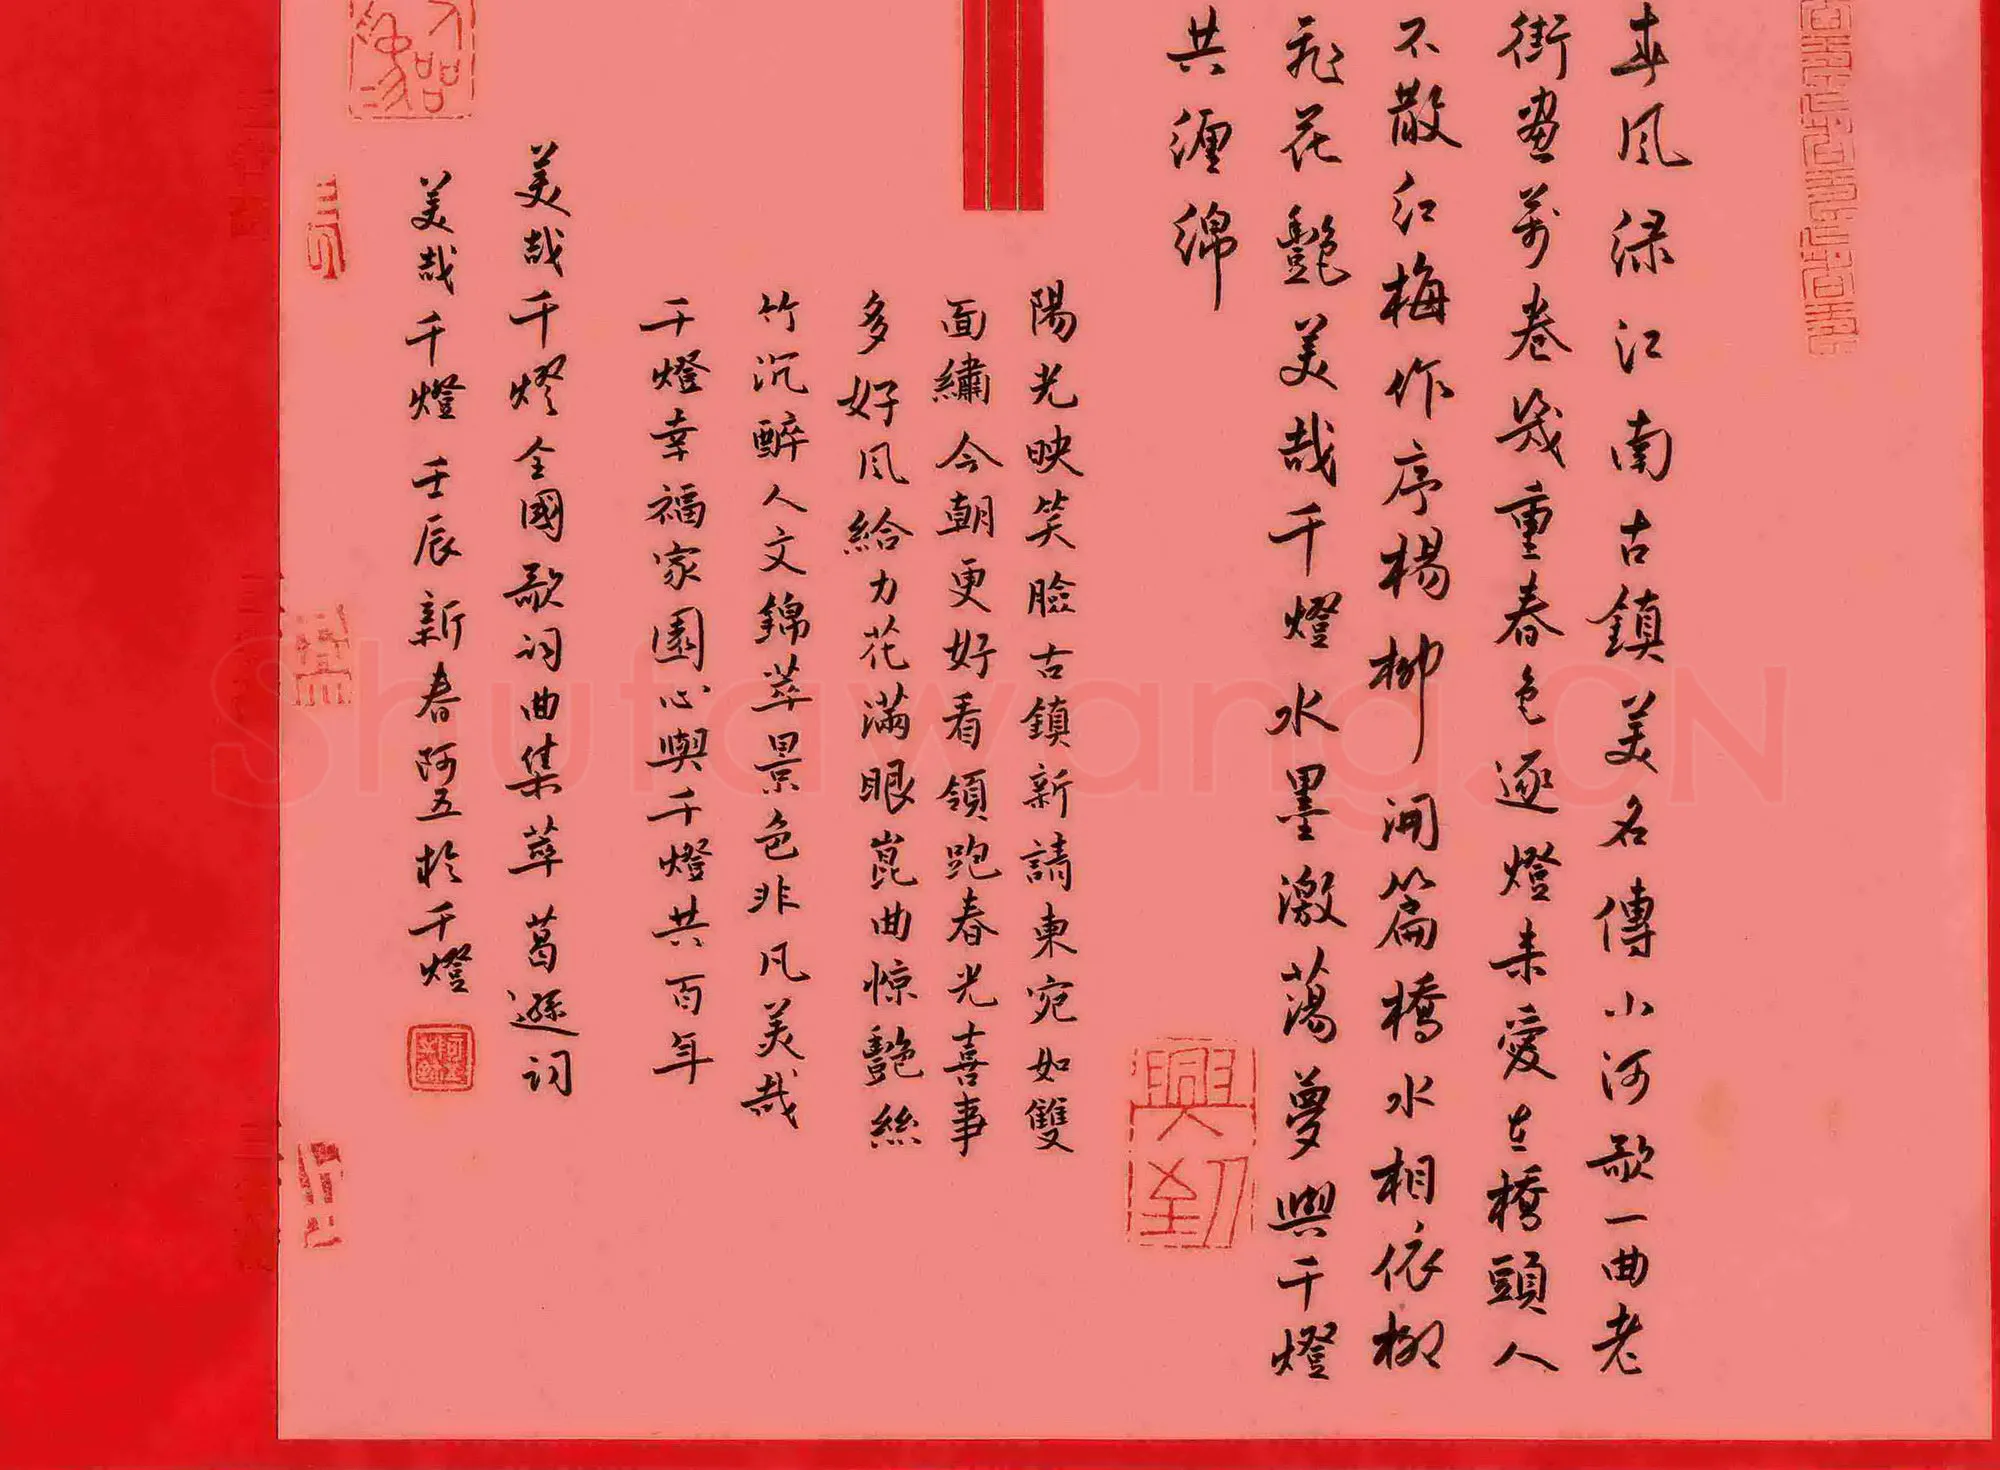 春风绿江南古鎮美名傳小河歌一曲老
街畫萬卷幾重春色逐燈来愛在橋頭人
不散红梅作序楊柳開篇橋水相依柳
飛花艷美哉千燈水墨激蕩夢與千燈
共缠绵
陽光映笑臉古鎮新請東宛如雙
面繡今朝更好看領跑春光喜事
多好风給力花滿眼崑曲惊艷絲
竹沉醉人文錦萃景色非凡美哉
千燈幸福家園心與千燈共百年
美哉千燈全國歌词曲集萃葛遜词
美哉千燈壬辰新春阿五於千燈
興到
Shufawang.CN